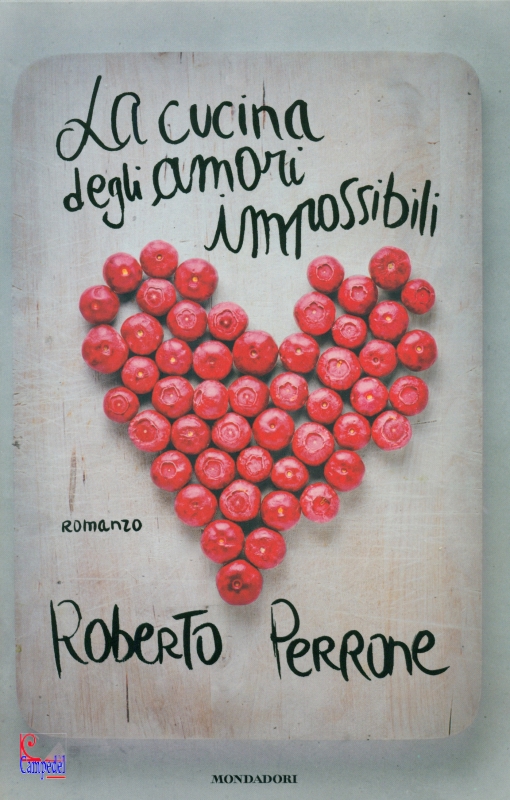 La cucina
degli amori
impossibili
Romanzo
Roberto Perrone
Campedel
MONDADORI